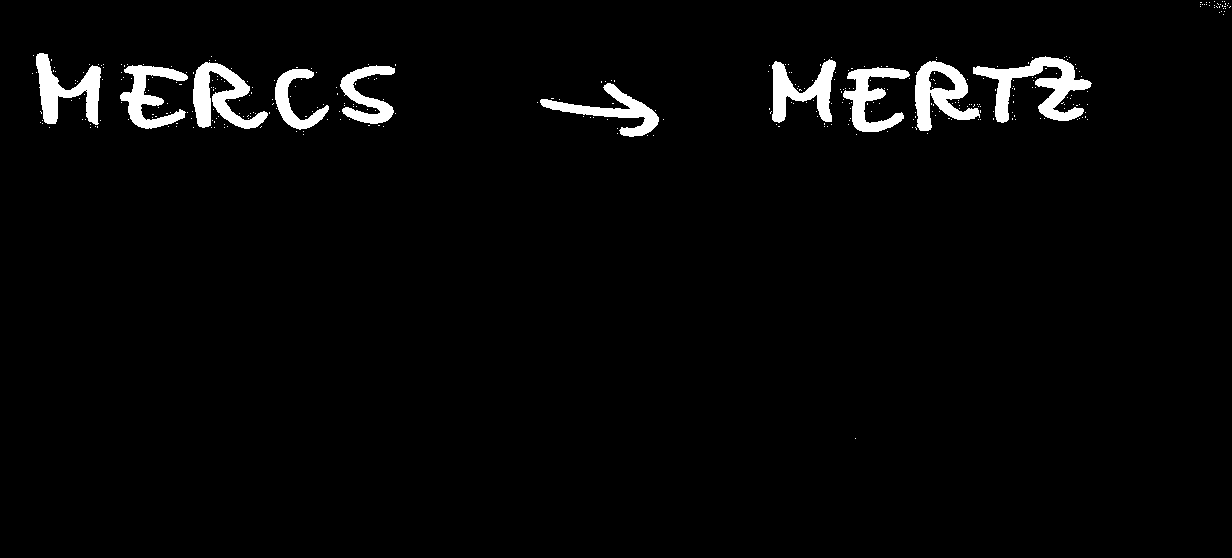 MERCS → MERTZ